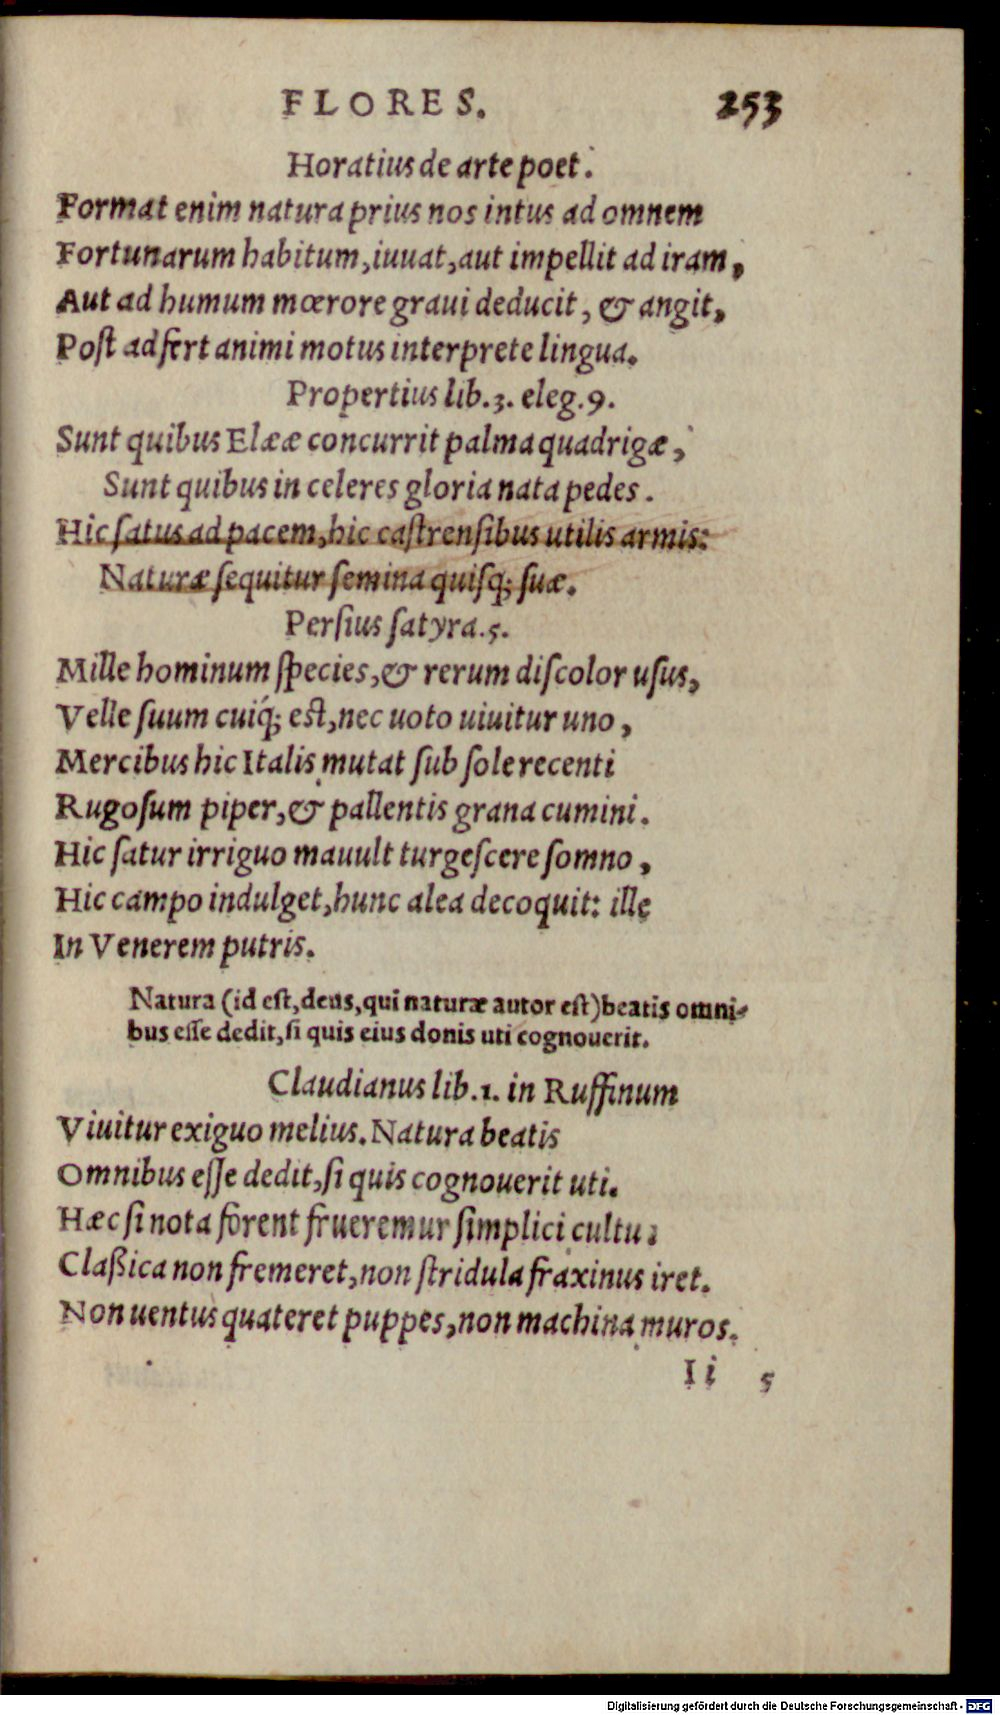 FLORES. 253
Horatius de arte poet.
Format enim natura prius nos intus ad omnem
Fortunarum habitum, iuuat, aut impellit ad iram,
Aut ad humum mœrore graui deducit, & angit,
Post adfert animi motus interprete lingua.
Propertius lib.3. eleg.9.
Sunt quibus Elææ concurrit palma quadrigæ,
Sunt quibus in celeres gloria nata pedes.
Hic ſatus ad pacem, hic caſtrenſibus utilis armis:
Naturæ ſequitur ſemina quiſq; ſuæ.
Perſius ſatyra.5.
Mille hominum ſpecies, & rerum diſcolor uſus,
Velle ſuum cuiq́; eſt, nec uoto uiuitur uno,
Mercibus hic Italis mutat ſub ſole recenti
Rugoſum piper, & pallentis grana cumini.
Hic ſatur irriguo mauult turgeſcere ſomno,
Hic campo indulget, hunc alea decoquit: ille
In Venerem putris.
Natura (id eſt, deus, qui naturæ autor eſt) beatis omni-
bus eſſe dedit, ſi quis eius donis uti cognouerit.
Claudianus lib.1. in Ruffinum
Viuitur exiguo melius. Natura beatis
Omnibus eſſe dedit, ſi quis cognouerit uti.
Hæc ſi nota forent frueremur ſimplici cultu:
Claßica non fremeret, non ſtridula fraxinus iret.
Non uentus quateret puppes, non machina muros.
Ii 5
Digitalisierung gefördert durch die Deutsche Forschungsgemeinschaft - DFG